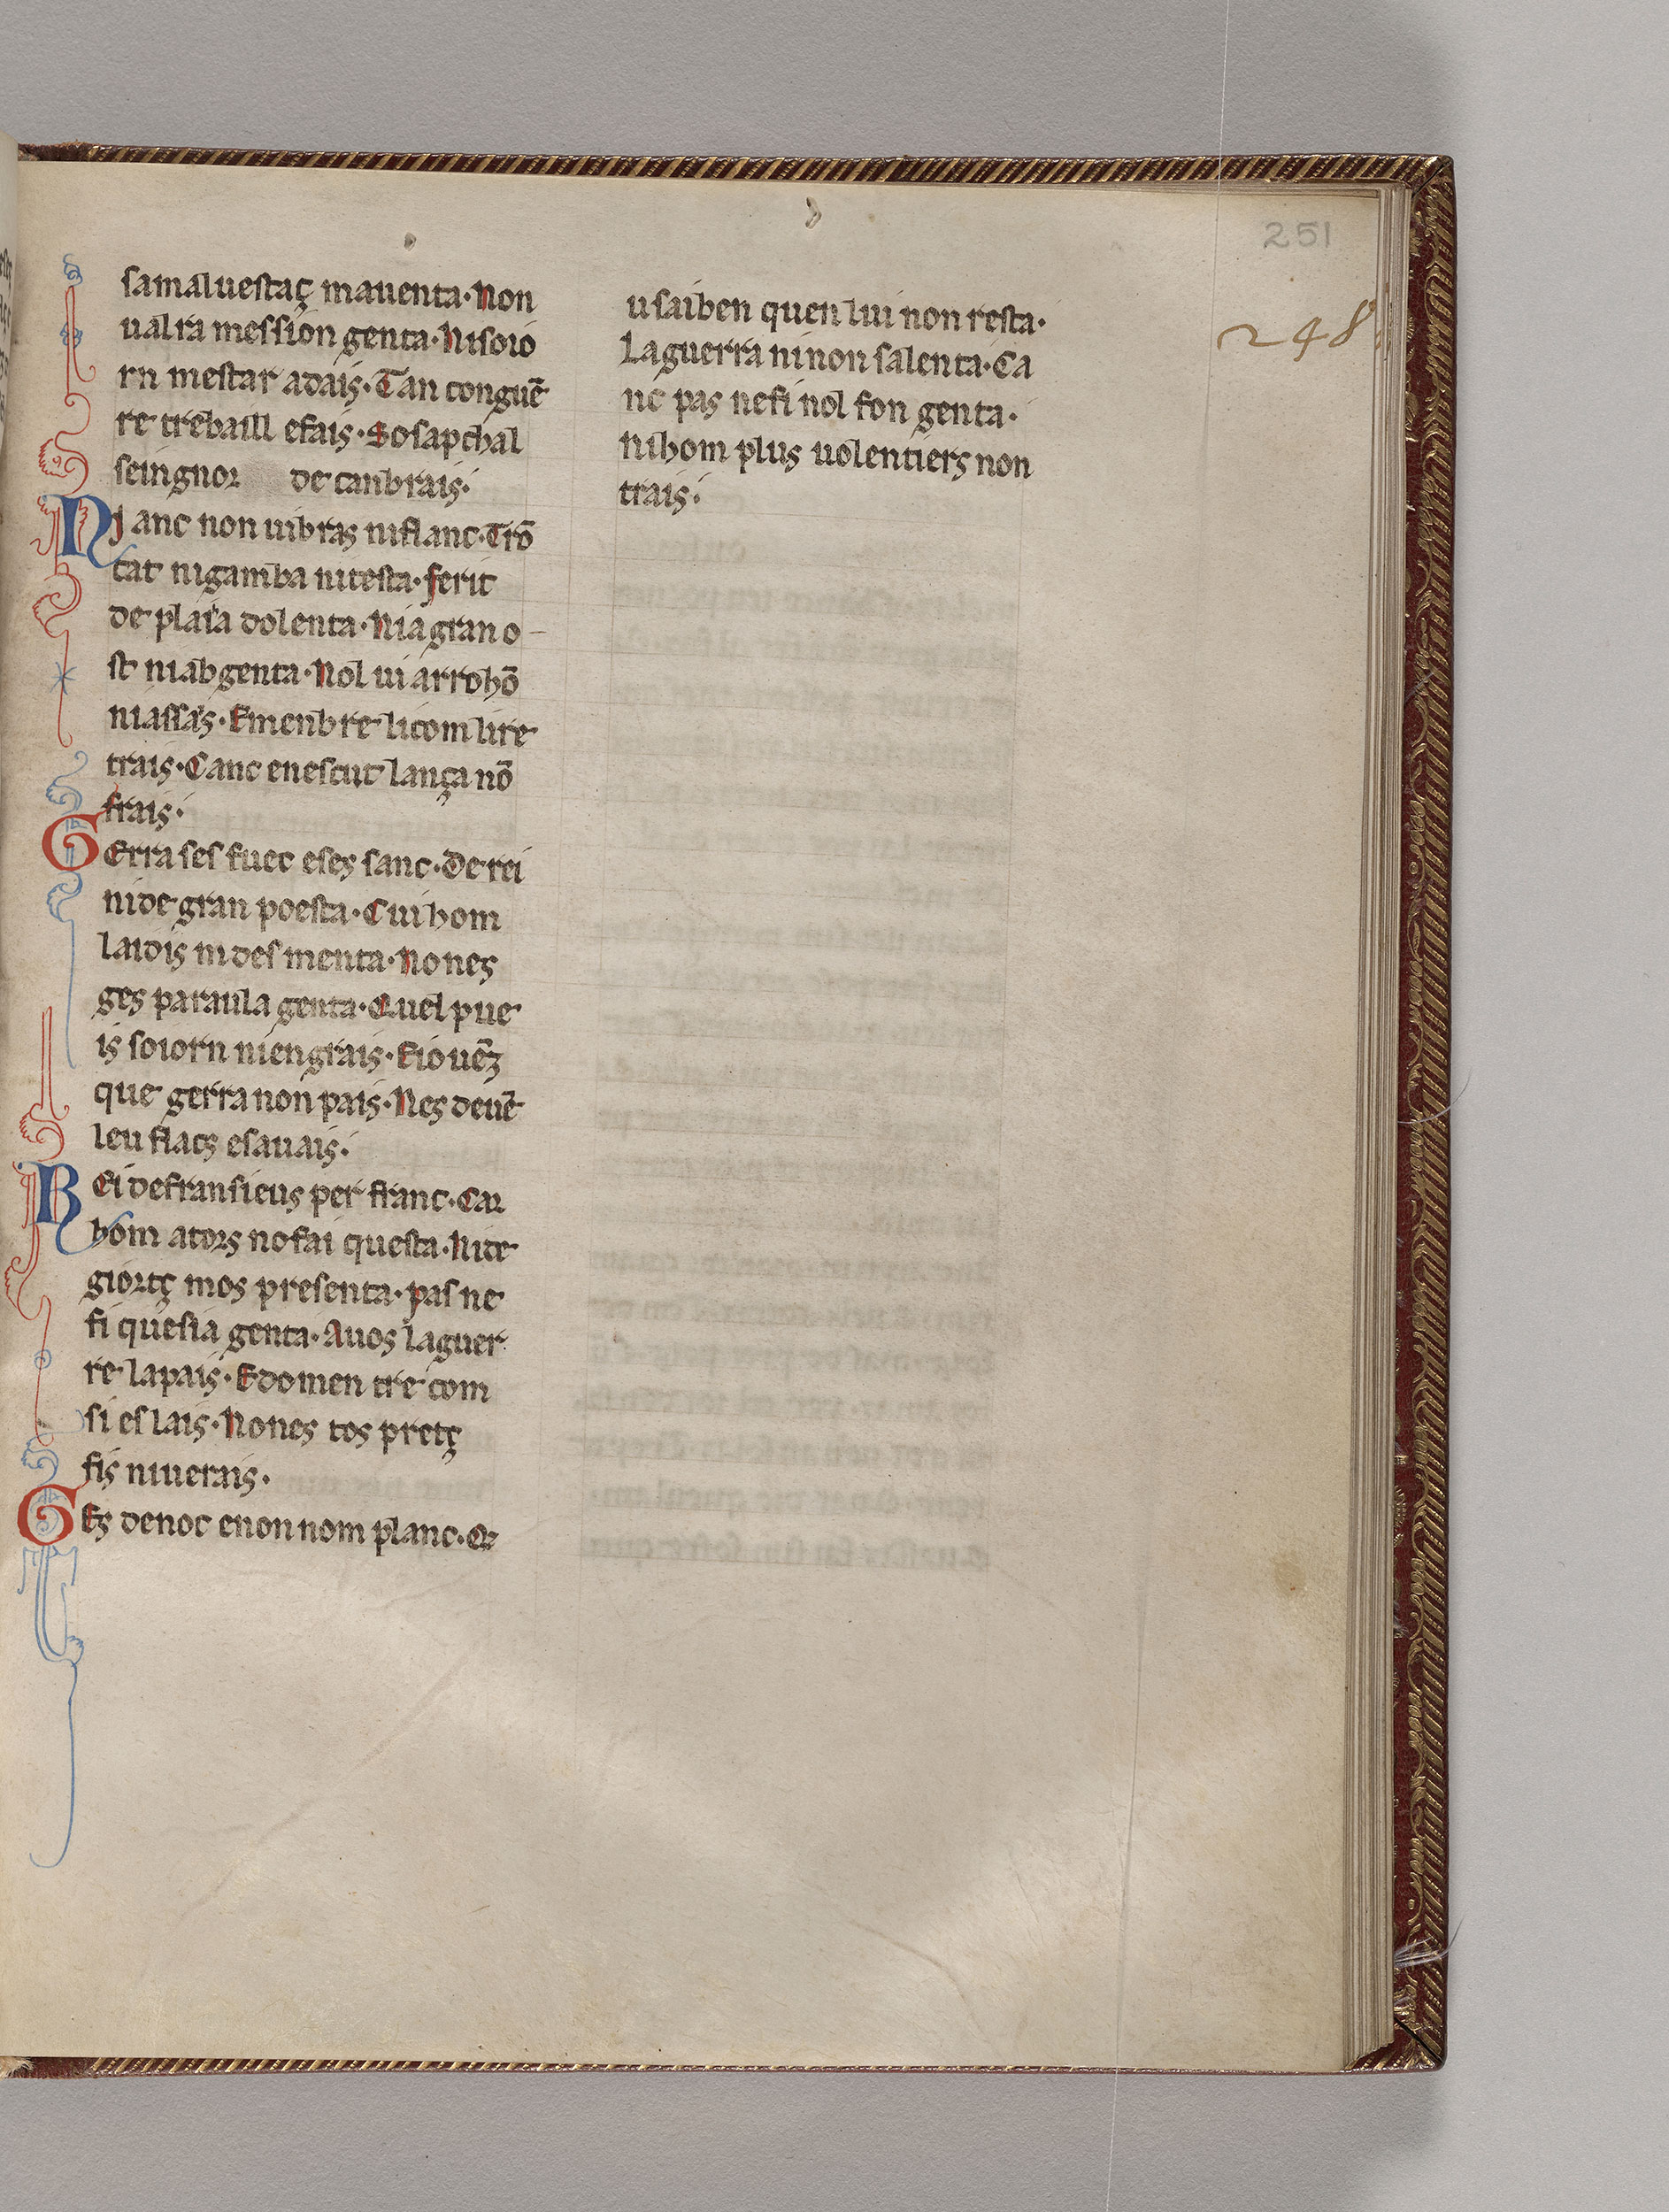 251
248
samaluestaç mauenta·Non
ual ra messiongenta·Nisoio
rn mestar adais·Tan conguē
re trebaill efais·Sosapchal
seingnor de canbrais·
Ni anc non uibras niflanc·Trō
cat nigamba nitesta·ferit
de plaia dolenta·Nia gran o–
st niabgenta·Nol ui arrohō
niassais·Emenbre licom lire
trais·Canc enescut lança nō
frais·
Gerra ses fuec eses sanc·De rei
nide gran poesta·Cui hom
laidis ni desmenta·Nones
ges paraula genta·Quel pue
is soiorn niengrais·Eiouēz
que gerra non pais·Nes deuē
leu flacs esauais·
Rei defransieus per franc·Car
hom ators nofai questa·Nite
giortç mos presenta·pas ne
fi quesia genta·Auos laguer
re lapais·Edomen tre com
si es lais·Nones tos pretç
fis niuerais·
Ges denoc enon nom planc·Qe
usaiben quen lui non resta·
Laguerra ni non salenta·Ca
nc pas nefi nol fon genta·
nihom plus uolentiers non
trais·